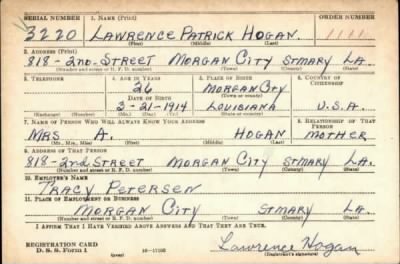 SERIAL NUMBER 1. NAME (Print) ORDER NUMBER
3220 LAWRENCE PATRICK HOGAN.
(First) (Middle) (Last)
2. ADDRESS (Print)
818-2nd-STREET MORGAN CITY STMARY LA.
(Number and street or R. F. D. number) (Town) (County) (State)
3. TELEPHONE 4. AGE IN YEARS 5. PLACE OF BIRTH 6. COUNTRY OF CITIZENSHIP
26 MORGAN CITY
DATE OF BIRTH (Town or county)
3-21-1914 LOUISIANA U.S.A.
(Exchange) (Number) (Mo.) (Day) (Yr.) (State or country)
7. NAME OF PERSON WHO WILL ALWAYS KNOW YOUR ADDRESS 8. RELATIONSHIP OF THAT PERSON
MRS A. HOGAN MOTHER
(Mr., Mrs., Miss) (First) (Middle) (Last)
9. ADDRESS OF THAT PERSON
818-2nd STREET MORGAN CITY STMARY LA.
(Number and street or R. F. D. number) (Town) (County) (State)
10. EMPLOYER'S NAME
TRACY PETERSEN
11. PLACE OF EMPLOYMENT OR BUSINESS
MORGAN CITY STMARY LA.
(Number and street or R. F. D. number) (Town) (County) (State)
I AFFIRM THAT I HAVE VERIFIED ABOVE ANSWERS AND THAT THEY ARE TRUE.
REGISTRATION CARD
D. S. S. Form 1 Lawrence Hogan
(Registrant's signature)